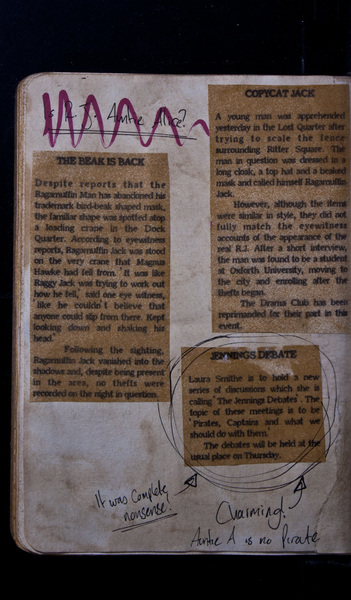 is R.J. Auntie Alice?
THE BEAK IS BACK
Despite reports that the
Ragamuffin Man has abandoned his
trademark bird-beak shaped mask,
the familiar shape was spotted atop
a loading crane in the Dock
Quarter. According to eyewitness
reports, Ragamuffin Jack was stood
on the very crane that Magnus
Hawke had fell from. 'It was like
Raggy Jack was trying to work out
how he fell,' said one eye witness,
'like he couldn't believe that
anyone could slip from there. Kept
looking down and shaking his
head.'
Following the sighting,
Ragamuffin Jack vanished into the
shadows and, despite being present
in the area, no thefts were
recorded on the night in question.
COPYCAT JACK
A young man was apprehended
yesterday in the Lost Quarter after
trying to scale the fence
surrounding Ritter Square. The
man in question was dressed in a
long cloak, a top hat and a beaked
mask and called himself Ragamuffin
Jack.
However, although the items
were similar in style, they did not
fully match the eyewitness
accounts of the appearance of the
real R.J. After a short interview,
the man was found to be a student
at Oxforth University, moving to
the city and enrolling after the
thefts began.
The Drama Club has been
reprimanded for their part in this
event.
JENNINGS DEBATE
Laura Smithe is to hold a new
series of discussions which she is
calling 'The Jennings Debates'. The
topic of these meetings is to be
'Pirates, Captains and what we
should do with them.'
The debates will be held at the
usual place on Thursday.
It was complete
nonsense!
Charming!
Auntie A is no Pirate